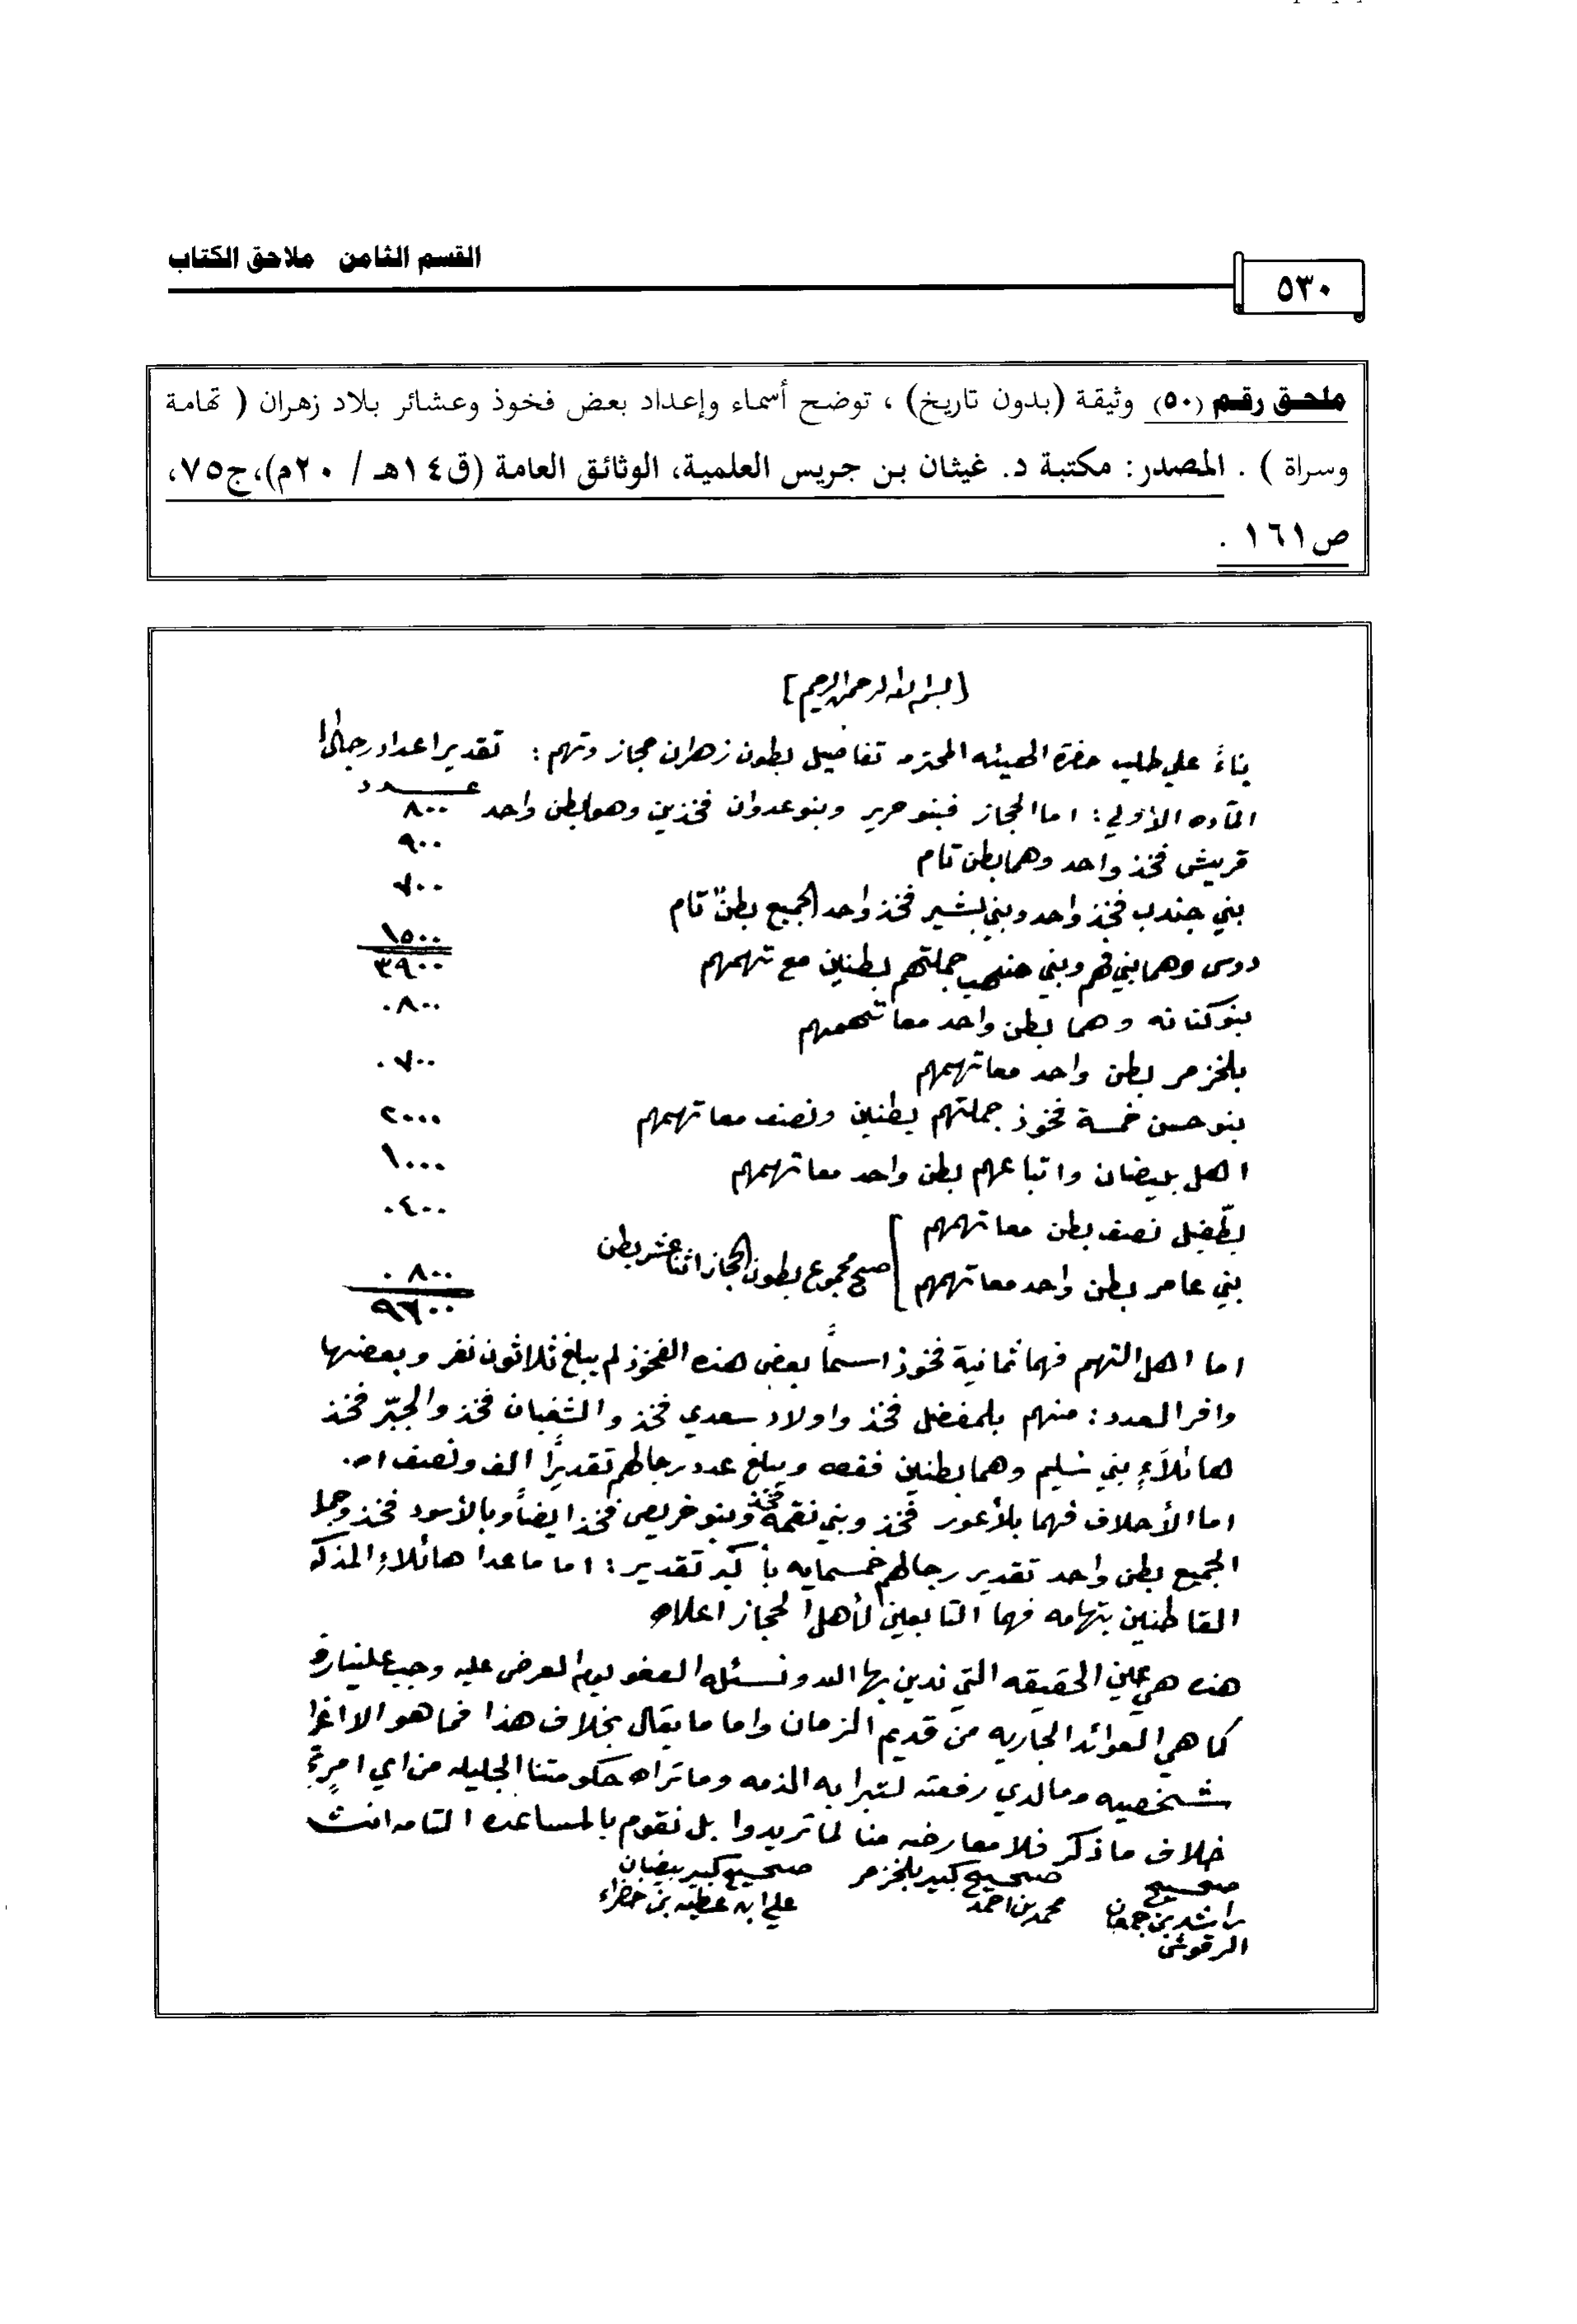 القسم الثامن ملاحق الكتاب
٥٣٠
ملحق رقم (٥٠) وثيقة (بدون تاريخ) ، توضح أسماء وإعداد بعض فخوذ وعشائر بلاد زهران ( تهامة
وسراة ) . المصدر: مكتبة د. غيثان بن جريس العلمية، الوثائق العامة (ق١٤هـ / ٢٠م)،ج٧٥،
ص١٦١ .
[بسم الله الرحمن الرحيم]
بناءً علي طلب حضرة الهيئه المحترمه تفاصيل بطون زهران حجاز وتهم : تقدير اعداد رجالها
عـــدد
الماده الأولي : اما الحجاز فبنو حرير وبنو عدوان فخذين وهما بطن واحد ٨٠٠
قريش فخذ واحد وهما بطن تام ٩٠٠
بني جندب فخذ واحد وبني بشير فخذ واحد الجميع بطنٌ تام ٧٠٠
دوس وهما بني فهم وبني منهب جملتهم بطنين مع تهمهم ١٥٠٠
٣٩٠٠
بنو كنانه وهما بطن واحد معا تهمهم ٠٨٠٠
بلخزمر بطن واحد معا تهمهم ٠٧٠٠
بنو حسن خمسة فخوذ جملتهم بطنين ونصف معا تهمهم ٢٠٠٠
اهل بيضان واتباعهم بطن واحد معا تهمهم ١٠٠٠
بطّفيل نصف بطن معا تهمهم ٠٤٠٠
بني عامر بطن واحد معا تهمهم ] صح مجموع بطون الحجاز اثنا عشر بطن ٠٨٠٠
٩٦٠٠
اما اهل التهم فهما ثمانية فخوذ اسماً بعض هذه الفخوذ لم يبلغ ثلاثون نفر وبعضها
وافر العدد : منهم بلمفضل فخذ واولاد سعدي فخذ والشغبان فخذ والجبّر فخذ
هائلآءِ بني سليم وهما بطنين فقط ويبلغ عدد رجالهم تقديرًا الف ونصف اهـ.
اما الأحلاف فهما بالأعور فخذ وبني نقمه فخذ وبنو خريص فخذ ايضاً وبالأسود فخذ وجملة
الجميع بطن واحد تقدير رجالهم خمسمايه بأكبر تقدير : اما ماعدا هائلاء المذكـ
القاطنين بتهامه فهما التابعين لأهل الحجاز اعلاه
هذه هي عين الحقيقه التي ندين بها الله ونسئله العفو يوم العرض عليه وجب علينا
كما هي العوائد الجاريه من قديم الزمان واما ما يقال بخلاف هذا فما هو الا اغرا
شخصيه ومالدي رفعته لتبرا به الذمه وما تراه حكومتنا الجليله من اي امر
خلاف ما ذكر فلا معارضه منا لما تريدوا بل نقوم بالمساعده التامه انشـ
صحيح
راشد بن جمعان
الرقوش
صحيح كبير بلخزمر
محمد بن احمد
صحيح كبير بيضان
علي ابن عطيه بن خضراء